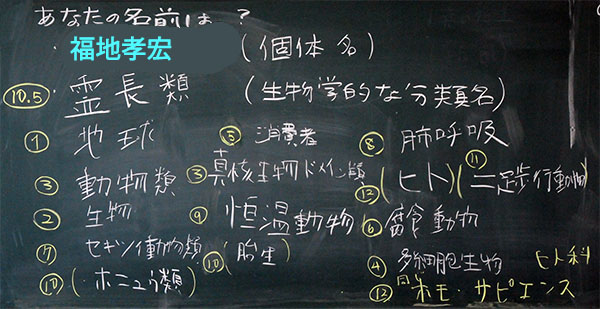 あなたの名前は?
・福地孝宏 (個体名)
10.5 ・霊長類 (生物学的な分類名)
① 地球
③ 動物類
② 生物
⑦ セキツイ動物類
⑩ (ホニュウ類)
⑤ 消費者
③ 真核生物ドメイン
⑨ 恒温動物
⑩ (胎生)
⑧ 肺呼吸
⑫ (ヒト) (⑪ 二足歩行動物)
⑥ 腐食動物
④ 多細胞生物 ヒト科
⑫ ホモ・サピエンス